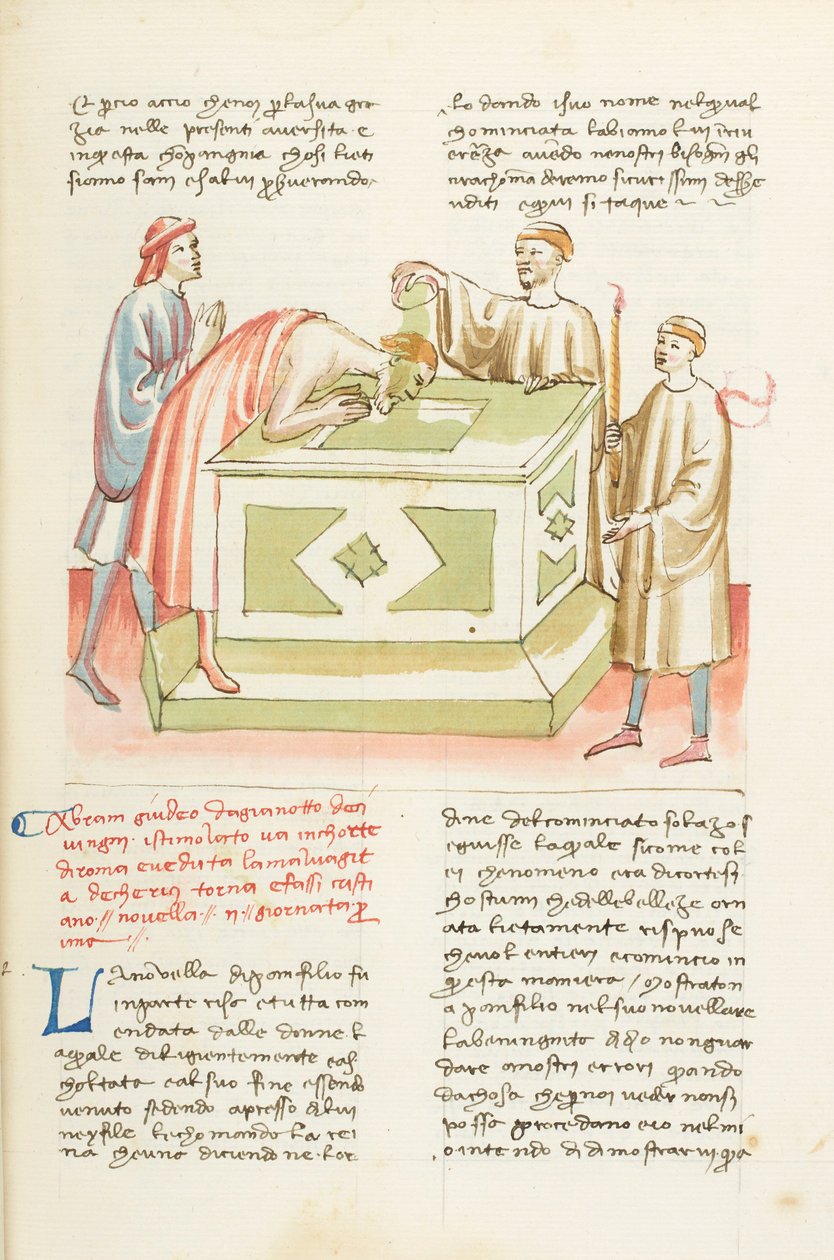 Et percio accio che noi per la sua gra
zia nelle presenti aversita e
in questa chopangnia chosi lieti
siamo sani e salvi perserverando
lo dando i suo nome nel qual
chominciata l abiamo lui in riv
erenza avendo ne nostri bisogni gli
ci rachomanderemo sicurissimi dess
uditi e qui si taque
Abram giudeo da gianotto deci
vingni istimolato va in chorte
di roma e veduta la malvagit
a de cherici torna e fassi cristi
ano // novella // II // giornata p
ima //
2
LA novella di panfilo fu
in parte risa e tutta com
endata dalle donne l
a quale diligientemente eas
choltata e al suo fine essendo
venuto sedendo apresso di lui
neyfile le chomando la rei
na che una diciendone l or
dine del cominciato solazo s
eguisse la quale sicome col
ei che nomeno era di cortesi
chostumi che delle belleze orn
ata lietamente rispuose
che volentieri e comincio in
questa maniera / Mostraton
a panfilio nel suo novellare
la beningnita di dio non guar
dare a nostri errori quando
da chosa che per noi veder non si
possa procedano e io nel mi
o intendo di dimostrarvi qua